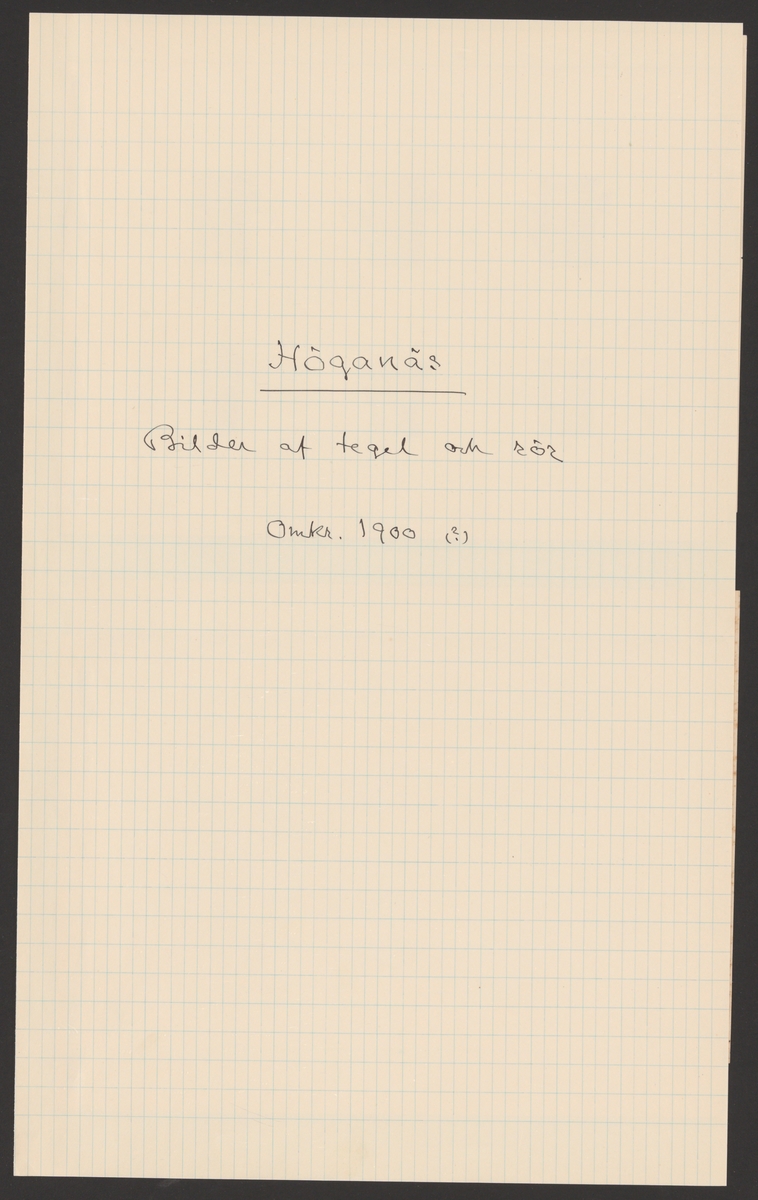 Höganäs
Bilder af tegel och rör
Omkr. 1900 (?)